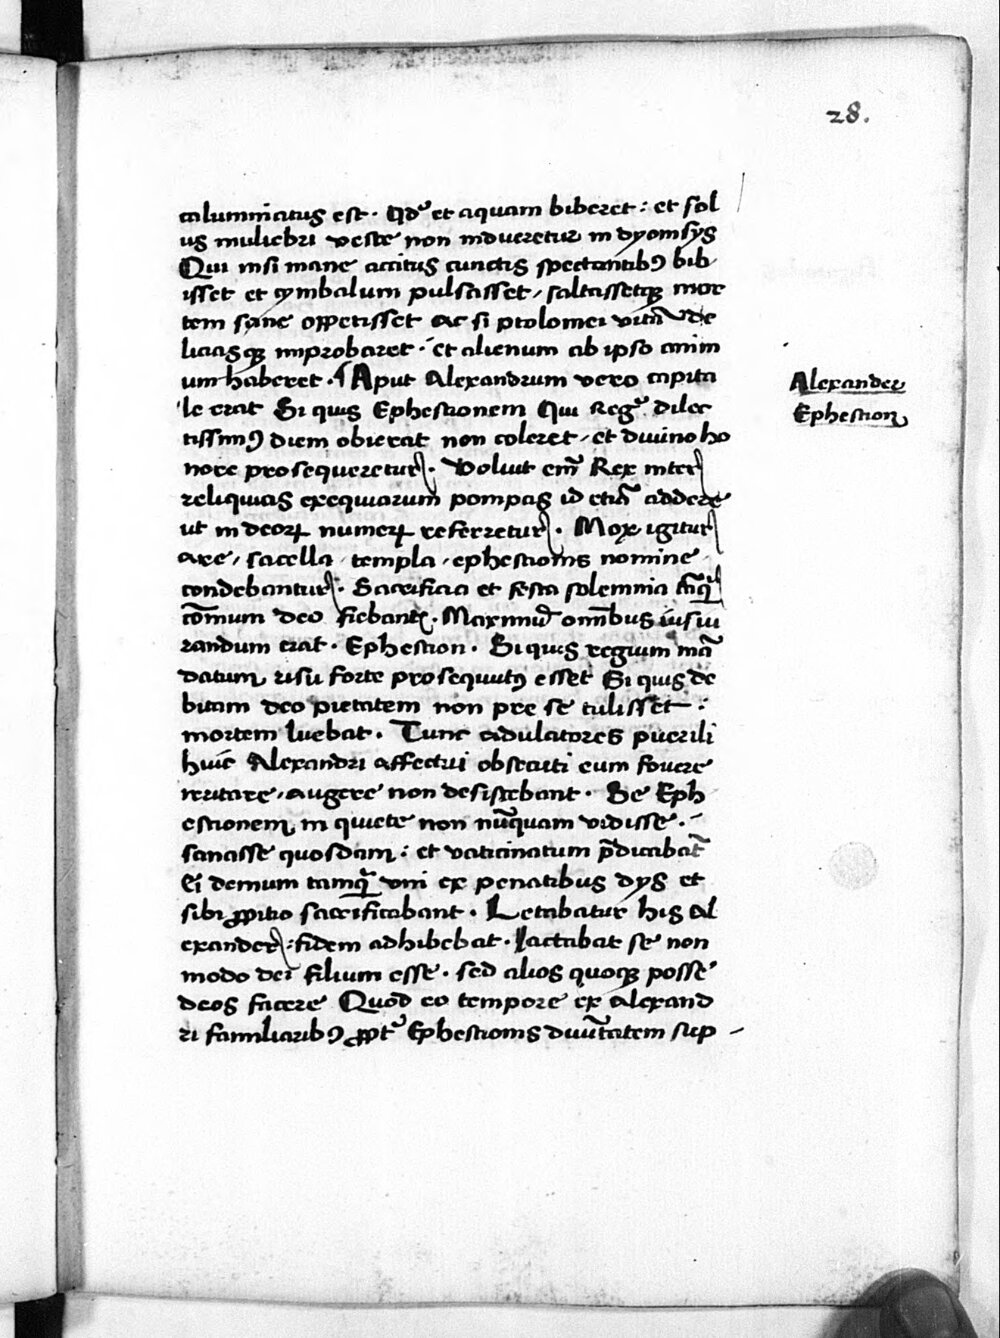 28.
calumniatus est. Qd' et aquam biberet : et sol
us muliebri veste non indueretur in dyonisys
Qui nisi mane accitus cunctis spectantibꝰ bib
isset et cymbalum pulsasset, saltassetqꝫ mor
tem sane oppetisset Ac si ptolomei vitā de
liciasqꝫ improbaret. et alienum ab ipso anim
um haberet. Aput Alexandrum vero capita
le erat Si quis Ephestionem Qui Reg' dilec
tissimꝰ diem obierat non coleret, et divino ho
nore prosequeretur. Voluit em̄ Rex inter
reliquias exequiarum pompas id etiā addere
ut in deoꝝ numeꝝ referretur. Mox igitur
are, sacella, templa, ephestionis nomine
condebantur. Sacrificia et festa solemnia
cōmum deo fiebant. Maximū omībus iusiu
randum erat. Ephestion. Si quis regium mā
datum risu forte prosequutꝰ esset Si quis de
bitam deo pietatem non pre se tulisset :
mortem luebat. Tunc adulatores puerili
huic Alexandri affectui obsecuti eum fovere
irritare, augere non desistebant. Se Eph
estionem in quiete non nūquam vidisse.
sanasse quosdam : et vaticinatum p̄dicabāt
Ei demum tamqᷓ vni ex penatibus dys et
sibi ꝓpitio sacrificabant. Letabatur his Al
exander : fidem adhibebat. Iactabat se non
modo dei filium esse. sed alios quoqꝫ posse
deos facere Quod eo tempore ex Alexand
ri familiaribꝰ ꝓpt' Ephestionis divinītatem sup
Alexander
Ephestion